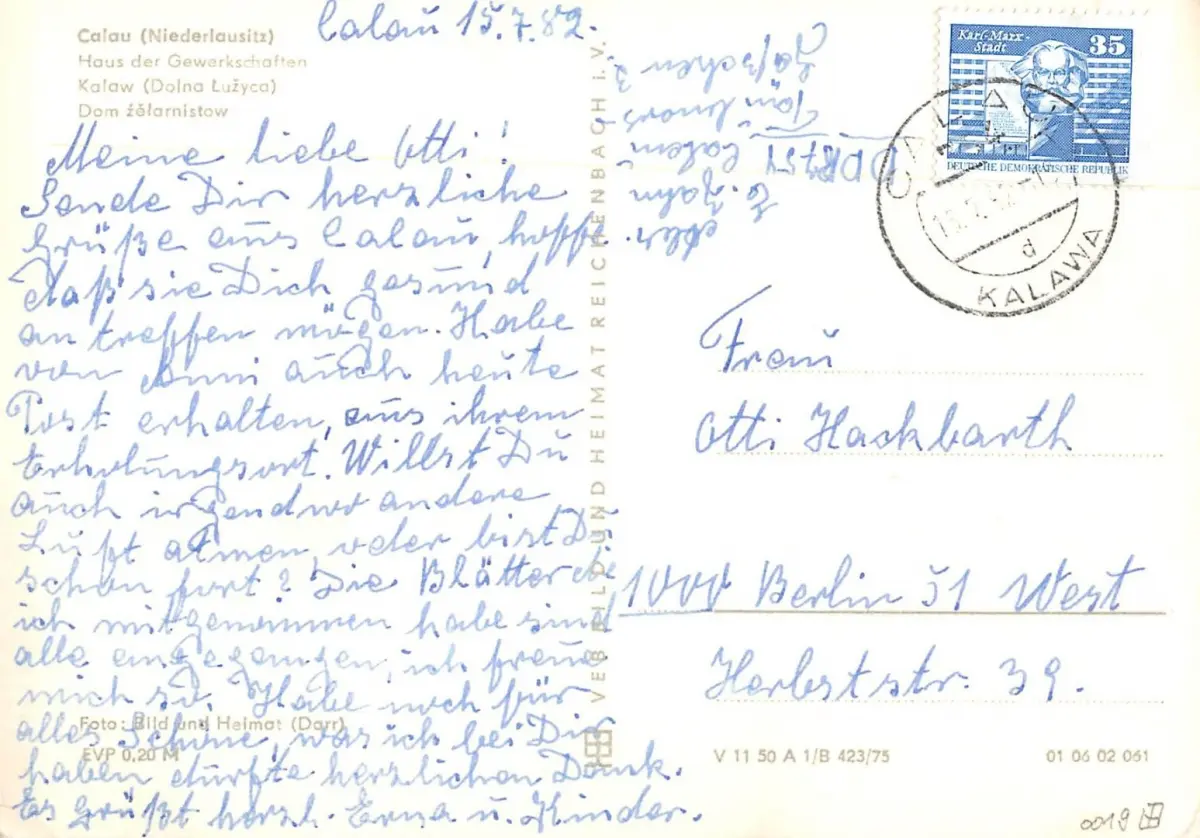 Calau (Niederlausitz)
Haus der Gewerkschaften
Kaław (Dolna Łužyca)
Dom źěłarnistow
Calau 15.7.82.
Meine liebe Otti!
Sende Dir herzliche
Grüße aus Calau, hoffe
daß sie Dich gesund
antreffen mögen. Habe
von Anni auch heute
Post erhalten, aus ihrem
Erholungsort. Willst Du
auch irgendwo andere
Luft atmen, oder bist Du
schon fort? Die Blätter die
ich mitgenommen habe sind
alle eingegangen, ich freue
mich so. Habe noch für
alles Schöne, was ich bei Dir
haben durfte herzlichen Dank.
Es grüßt herzl. Erna u. Kinder.
Foto: Bild und Heimat (Darr)
EVP 0,20 M
VEB BILD UND HEIMAT REICHENBACH i. V.
Abs.
E. Jahn
DDR 754 Calau
Gäßchen 2.
Karl-Marx-
Stadt
35
DEUTSCHE DEMOKRATISCHE REPUBLIK
CALAU
15.7.82
d
KALAWA
Frau
Otti Hackbarth
1000 Berlin 51 West
Herbststr. 39.
V 11 50 A 1/B 423/75
01 06 02 061
0019